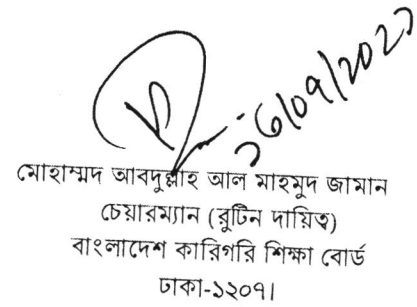 মোহাম্মদ আবদুল্লাহ আল মাহমুদ জামান
চেয়ারম্যান (রুটিন দায়িত্ব)
বাংলাদেশ কারিগরি শিক্ষা বোর্ড
ঢাকা-১২০৭।